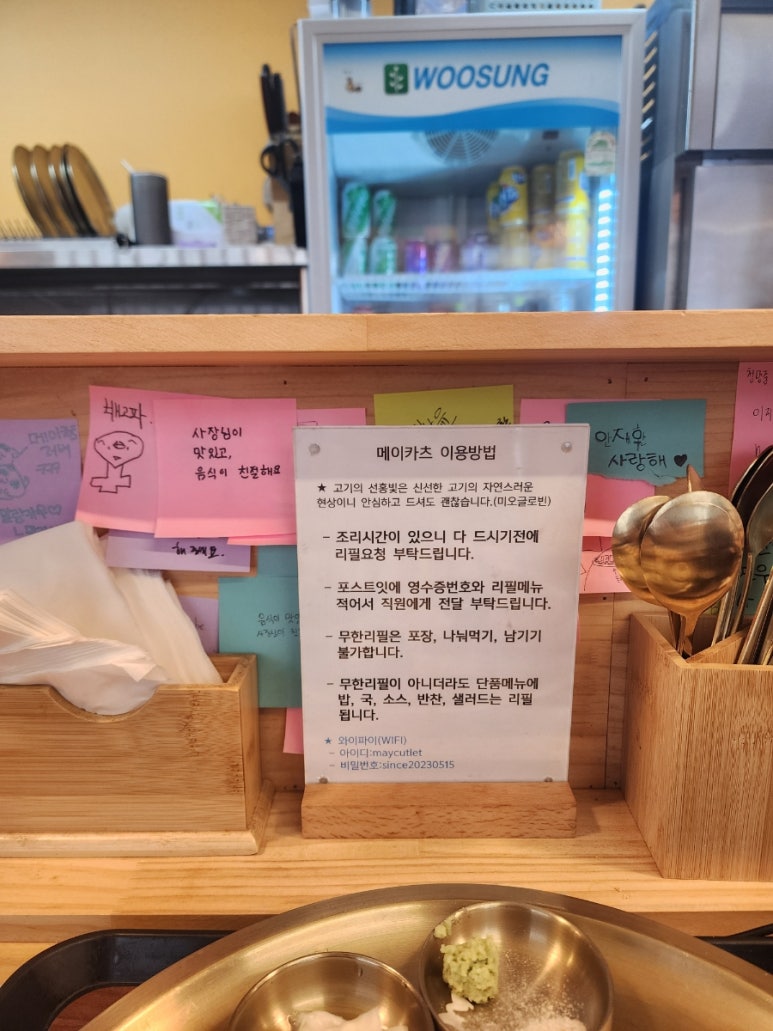 WOOSUNG
해2파
사장님이
맛있고,
음식이 친절해요
해 줘요.
안재환
사랑해 ♥
메이카츠 이용방법
★ 고기의 선홍빛은 신선한 고기의 자연스러운
현상이니 안심하고 드셔도 괜찮습니다.(미오글로빈)
- 조리시간이 있으니 다 드시기전에
리필요청 부탁드립니다.
- 포스트잇에 영수증번호와 리필메뉴
적어서 직원에게 전달 부탁드립니다.
- 무한리필은 포장, 나눠먹기, 남기기
불가합니다.
- 무한리필이 아니더라도 단품메뉴에
밥, 국, 소스, 반찬, 샐러드는 리필
됩니다.
★ 와이파이(WIFI)
- 아이디:maycutlet
- 비밀번호:since20230515